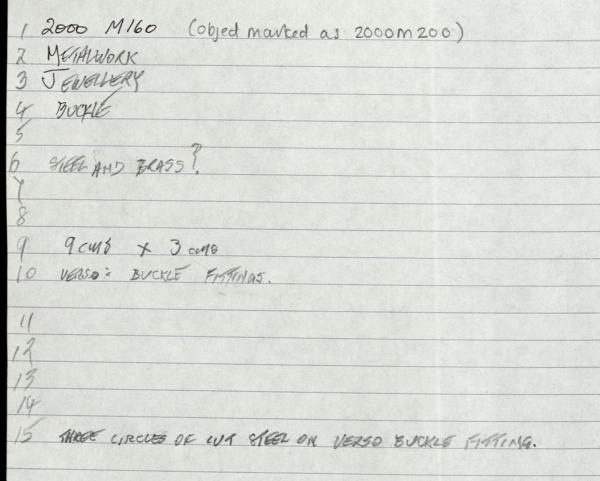 1 2000 M160 (object marked as 2000m200)
2 METALWORK
3 JEWELLERY
4 BUCKLE
5
6 STEEL AND BRASS?
7
8
9 9 cms x 3 cms
10 VERSO: BUCKLE FITTINGS.
11
12
13
14
15 THREE CIRCLES OF CUT STEEL ON VERSO BUCKLE FITTING.